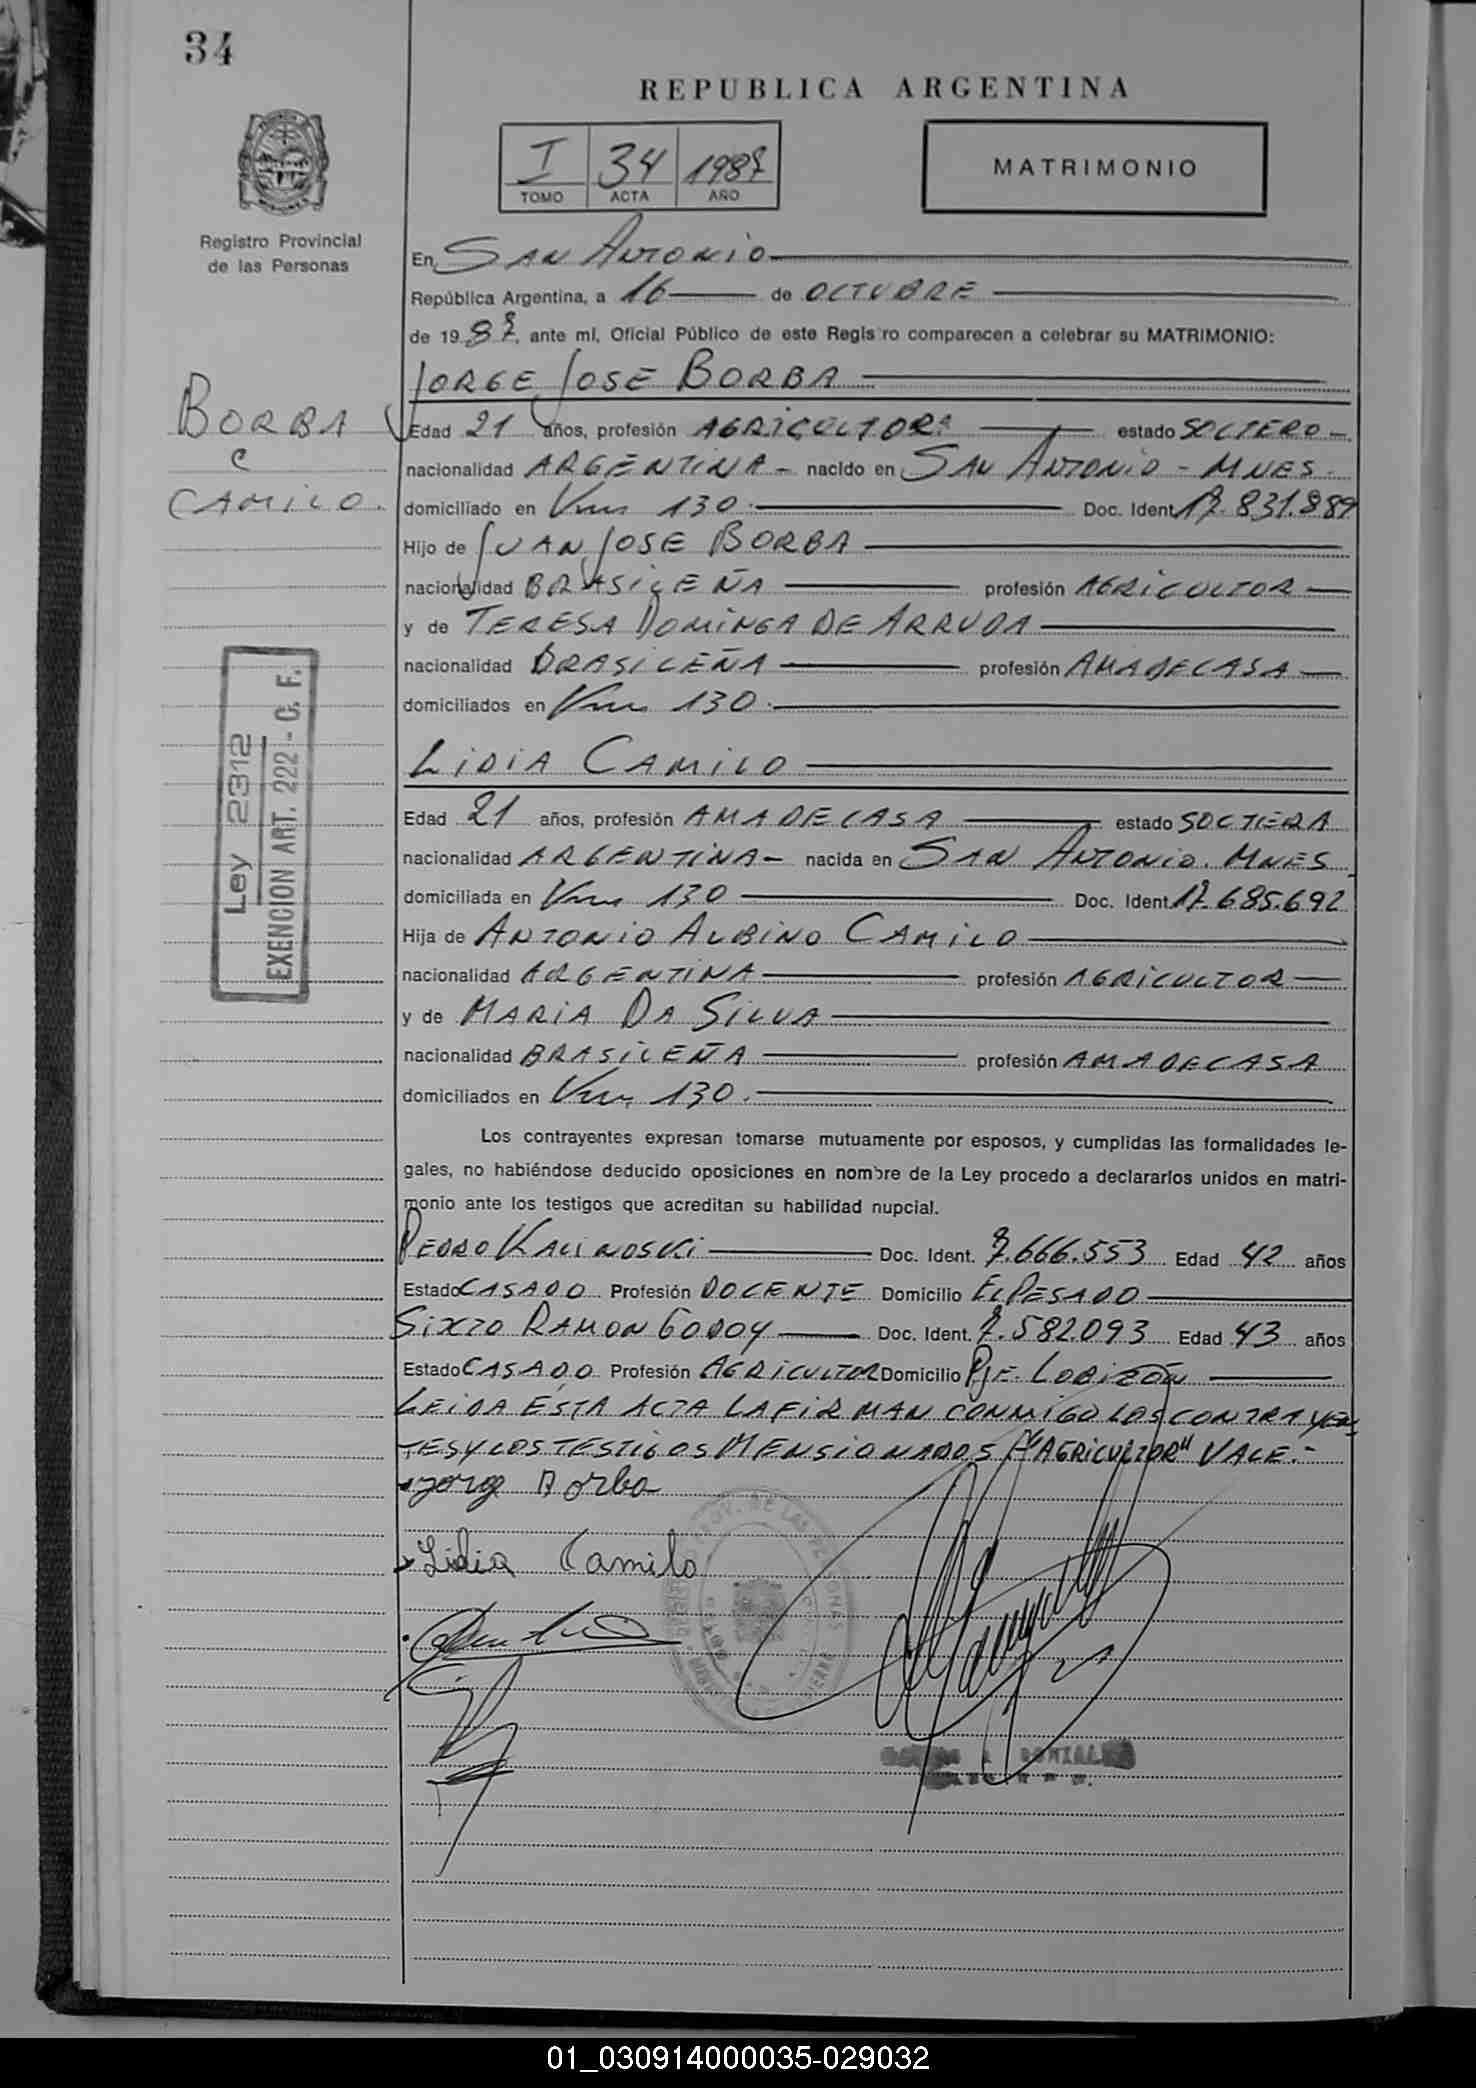 34
REPUBLICA ARGENTINA
I 34 1987
TOMO ACTA AÑO
MATRIMONIO
Registro Provincial
de las Personas
En SAN ANTONIO
República Argentina, a 16 de OCTUBRE
de 1987, ante mí, Oficial Público de este Registro comparecen a celebrar su MATRIMONIO:
JORGE JOSE BORBA
BORBA
c
CAMILO.
Edad 21 años, profesión AGRICULTOR estado SOLTERO
nacionalidad ARGENTINA - nacido en SAN ANTONIO - MNES.
domiciliado en Km 130. Doc. Ident. 17.831.889
Hijo de JUAN JOSE BORBA
nacionalidad BRASILEÑA profesión AGRICULTOR
y de TERESA DOMINGA DE ARRUDA
nacionalidad BRASILEÑA profesión AMA DE CASA
domiciliados en Km 130.
LIDIA CAMILO
Ley 2312
EXENCION ART. 222 - C. F.
Edad 21 años, profesión AMA DE CASA estado SOLTERA
nacionalidad ARGENTINA - nacida en SAN ANTONIO. MNES
domiciliada en Km 130 Doc. Ident. 17.685.692
Hija de ANTONIO ALBINO CAMILO
nacionalidad ARGENTINA profesión AGRICULTOR
y de MARIA DA SILVA
nacionalidad BRASILEÑA profesión AMA DE CASA
domiciliados en Km 130.
Los contrayentes expresan tomarse mutuamente por esposos, y cumplidas las formalidades le-
gales, no habiéndose deducido oposiciones en nombre de la Ley procedo a declararlos unidos en matri-
monio ante los testigos que acreditan su habilidad nupcial.
PEDRO KALINOSKI Doc. Ident. 7.666.553 Edad 42 años
Estado CASADO Profesión DOCENTE Domicilio EL PESADO
SIXTO RAMON GODOY Doc. Ident. 7.582.093 Edad 43 años
Estado CASADO Profesión AGRICULTOR Domicilio Pje. LOBIZÓN
LEIDA ESTA ACTA LA FIRMAN CONMIGO LOS CONTRAYEN-
TES Y LOS TESTIGOS MENSIONADOS "AGRICULTOR" VALE.-
Jorge Borba
Lidia Camilo
01_030914000035-029032